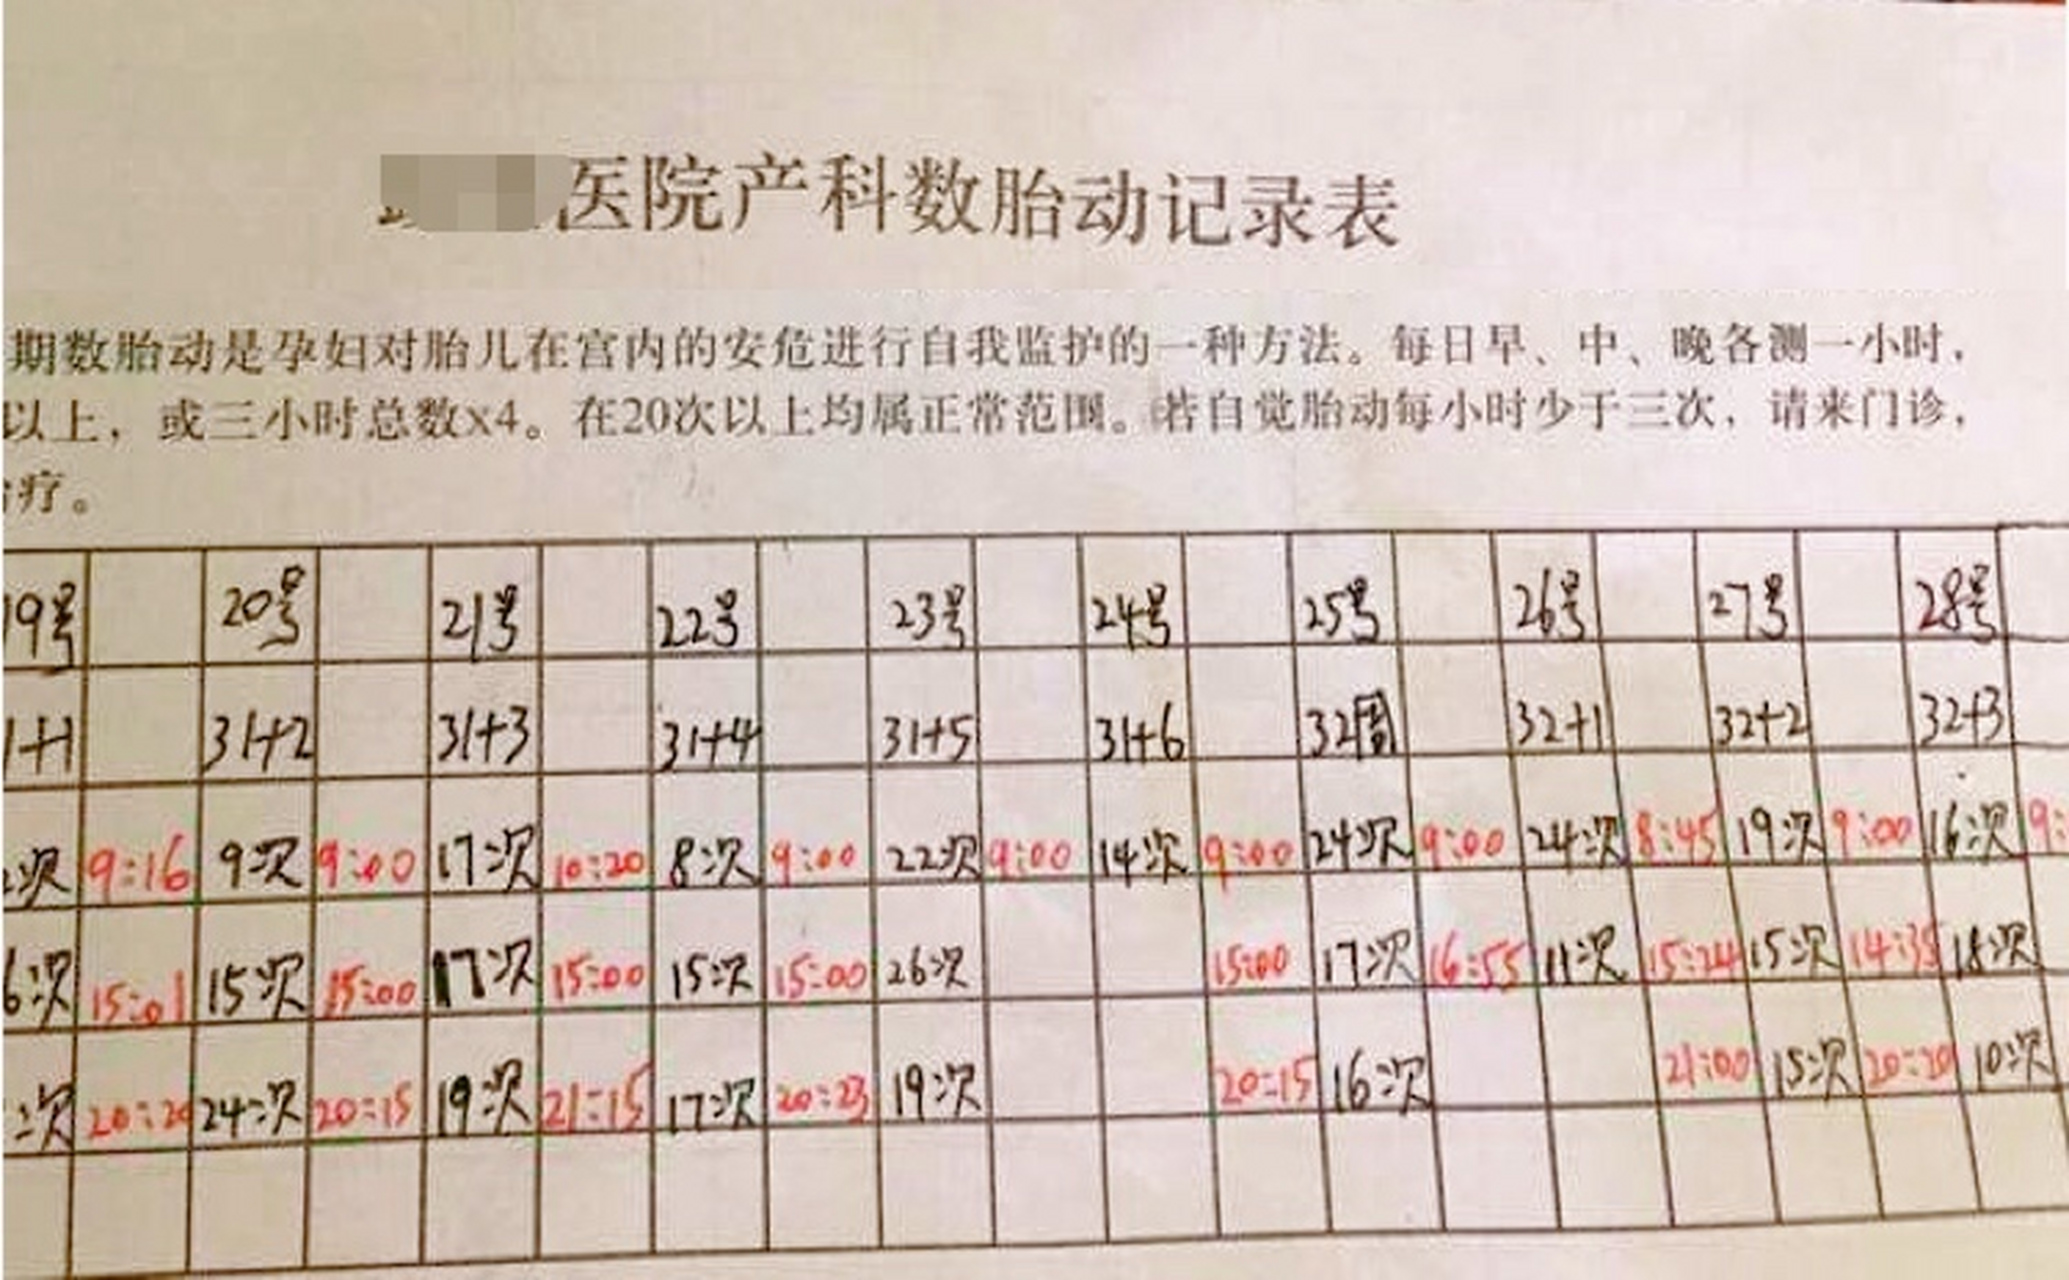 医院产科数胎动记录表
期数胎动是孕妇对胎儿在宫内的安危进行自我监护的一种方法。每日早、中、晚各测一小时,
以上,或三小时总数X4。在20次以上均属正常范围。若自觉胎动每小时少于三次,请来门诊,
疗。
19号 20号 21号 22号 23号 24号 25号 26号 27号 28号
1+1 31+2 31+3 31+4 31+5 31+6 32周 32+1 32+2 32+3
次 9:16 9次 9:00 17次 10:20 8次 9:00 22次 9:00 14次 9:00 24次 9:00 24次 8:45 19次 9:00 16次 9:
6次 15:01 15次 15:00 17次 15:00 15次 15:00 26次 15:00 17次 16:55 11次 15:24 15次 14:35 18次
次 20:20 24次 20:15 19次 21:15 17次 20:23 19次 20:15 16次 21:00 15次 20:20 10次